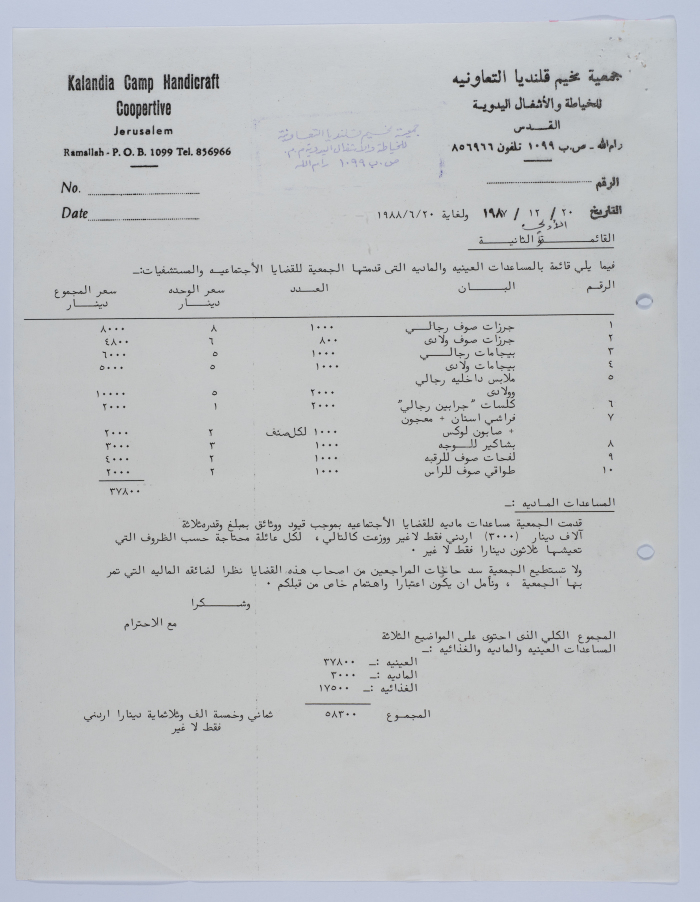 Kalandia Camp Handicraft
Coopertive
Jerusalem
Ramallah - P. O. B. 1099 Tel. 856966
No.
Date
جمعية مخيم قلنديا التعاونيه
للخياطة والأشغال اليدوية
القـدس
رام الله - ص.ب ١٠٩٩ تلفون ٨٥٦٩٦٦
الرقم
جمعية مخيم قلنديا التعاونية
للخياطة والأشغال اليدوية م.م
ص.ب ١٠٩٩ رام الله
التاريخ ٢٠ / ١٢ / ١٩٨٧ ولغاية ١٩٨٨/٦/٢٠
الأولى
القائمة الثانية
فيما يلي قائمة بالمساعدات العينيه والماديه التى قدمتها الجمعية للقضايا الأجتماعيه والمستشفيات :ـ
الرقم البـــان العـدد سعر الوحده سعر المجموع
دينـار دينـار
١ جرزات صوف رجالـي ١٠٠٠ ٨ ٨٠٠٠
٢ جرزات صوف ولادى ٨٠٠ ٦ ٤٨٠٠
٣ بيجامات رجالـي ١٠٠٠ ٥ ٦٠٠٠
٤ بيجامات ولادى ١٠٠٠ ٥ ٥٠٠٠
٥ ملابس داخليه رجالي
وولادى ٢٠٠٠ ٥ ١٠٠٠٠
٦ كلسات "جرابين رجالي" ٢٠٠٠ ١ ٢٠٠٠
٧ فراشي اسنان + معجون
+ صابون لوكس ١٠٠٠ لكل صنف ٢ ٢٠٠٠
٨ بشاكير للـوجه ١٠٠٠ ٣ ٣٠٠٠
٩ لفحات صوف للرقبه ١٠٠٠ ٢ ٤٠٠٠
١٠ طواقي صوف للراس ١٠٠٠ ٢ ٢٠٠٠
٣٧٨٠٠
المساعدات الماديه :ـ
قدمت الجمعية مساعدات ماديه للقضايا الأجتماعيه بموجب قيود ووثائق بمبلغ وقدره ثلاثة
آلاف دينار (٣٠٠٠) اردني فقط لاغير ووزعت كالتالي ، لكل عائلة محتاجة حسب الظروف التي
تعيشها ثلاثون دينارا فقط لا غير ٠
ولا تستطيع الجمعية سد حاجات المراجعين من اصحاب هذه القضايا نظرا لضائقه الماليه التي تمر
بها الجمعية ، ونأمل ان يكون اعتبارا واهتمام خاص من قبلكم ٠
وشـكرا
مع الاحترام
المجموع الكلي الذى احتوى على المواضيع الثلاثة
المساعدات العينيه والماديه والغذائيه :ـ
العينيه :ـ ٣٧٨٠٠
الماديه :ـ ٣٠٠٠
الغذائيه :ـ ١٧٥٠٠
المجمـوع ٥٨٣٠٠ ثماني وخمسة الف وثلاثماية دينارا اردني
فقط لا غير